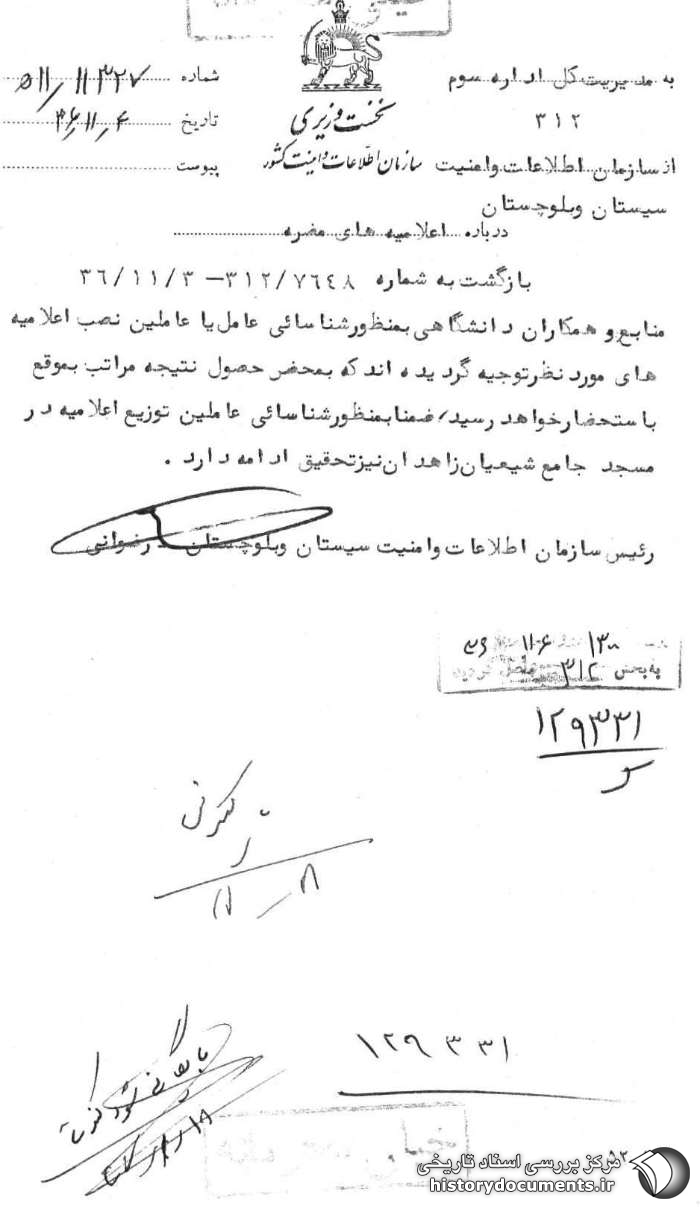 به مدیریت کل اداره سوم
۳۱۲
از سازمان اطلاعات وامنیت
سیستان وبلوچستان
درباره اعلامیه های مضره
نخست وزیری
سازمان اطلاعات و امنیت کشور
شماره ۱۱۳۲۷/ ۵۱۱
تاریخ ۳۶/۱۱/۴
پیوست
بازگشت به شماره ۳۱۲/۷٦٤٨ – ۳٦/۱۱/۳
منابع و همکاران دانشگاهی بمنظور شناسائی عامل یا عاملین نصب اعلامیه
های مورد نظر توجیه گردیده اند که بمحض حصول نتیجه مراتب بموقع
باستحضار خواهد رسید/ ضمنا بمنظور شناسائی عاملین توزیع اعلامیه در
مسجد جامع شیعیان زاهدان نیز تحقیق ادامه دارد .
رئیس سازمان اطلاعات وامنیت سیستان وبلوچستان . رضوانی
۱۳۰۰ ۱۱-۶
به بخش ۳۱۲ واصل گردید
۱۲۹۳۳۱
۱۱-۸
۱۲۹۳۳۱
بایگانی شود
مرکز بررسی اسناد تاریخی
historydocuments.ir